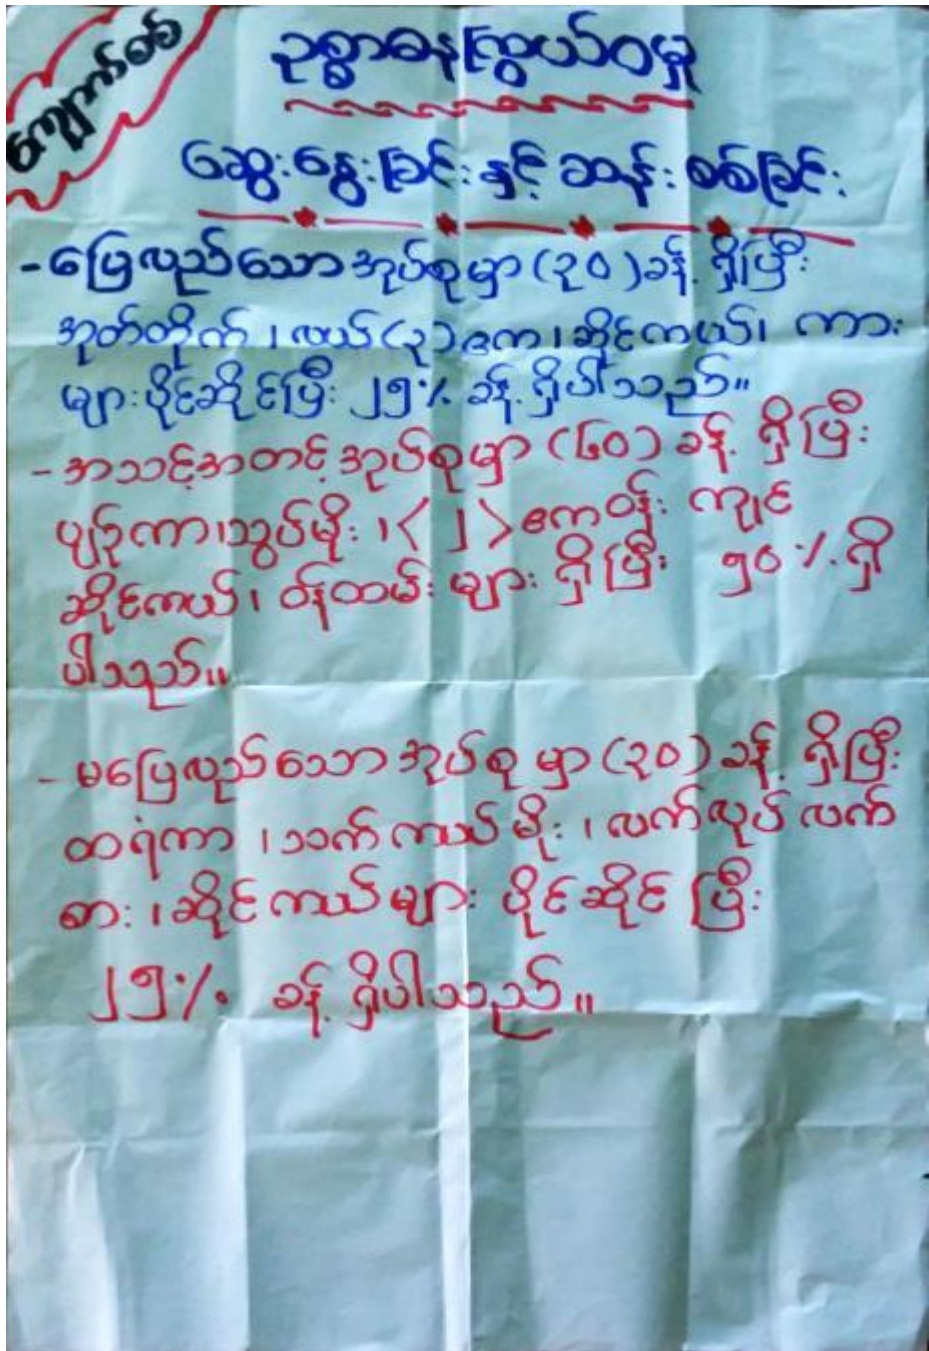 ကျောက်စစ်
ဥစ္စာဓနကြွယ်ဝမှု
ဆွေးနွေးခြင်းနှင့် ဆန်းစစ်ခြင်း
- ပြေလည်သောအုပ်စုမှာ (၃၀) ခန့် ရှိပြီး
အုတ်တိုက်၊ လယ် (၃) ဧက၊ ဆိုင်ကယ်၊ ကား
များပိုင်ဆိုင်ပြီး ၂၅% ခန့် ရှိပါသည်။
- အသင့်အတင့်အုပ်စုမှာ (၆၀) ခန့် ရှိပြီး
ပျဉ်ကာ၊ သွပ်မိုး၊ < ၂ > ဧကဝန်းကျင်
ဆိုင်ကယ်၊ ဝန်ထမ်းများ ရှိပြီး ၅၀% ရှိ
ပါသည်။
- မပြေလည်သောအုပ်စုမှာ (၃၀) ခန့် ရှိပြီး
ထရံကာ၊ သက်ကယ်မိုး၊ လက်လုပ်လက်
စား၊ ဆိုင်ကယ်များ ပိုင်ဆိုင်ပြီး
၂၅% ခန့် ရှိပါသည်။